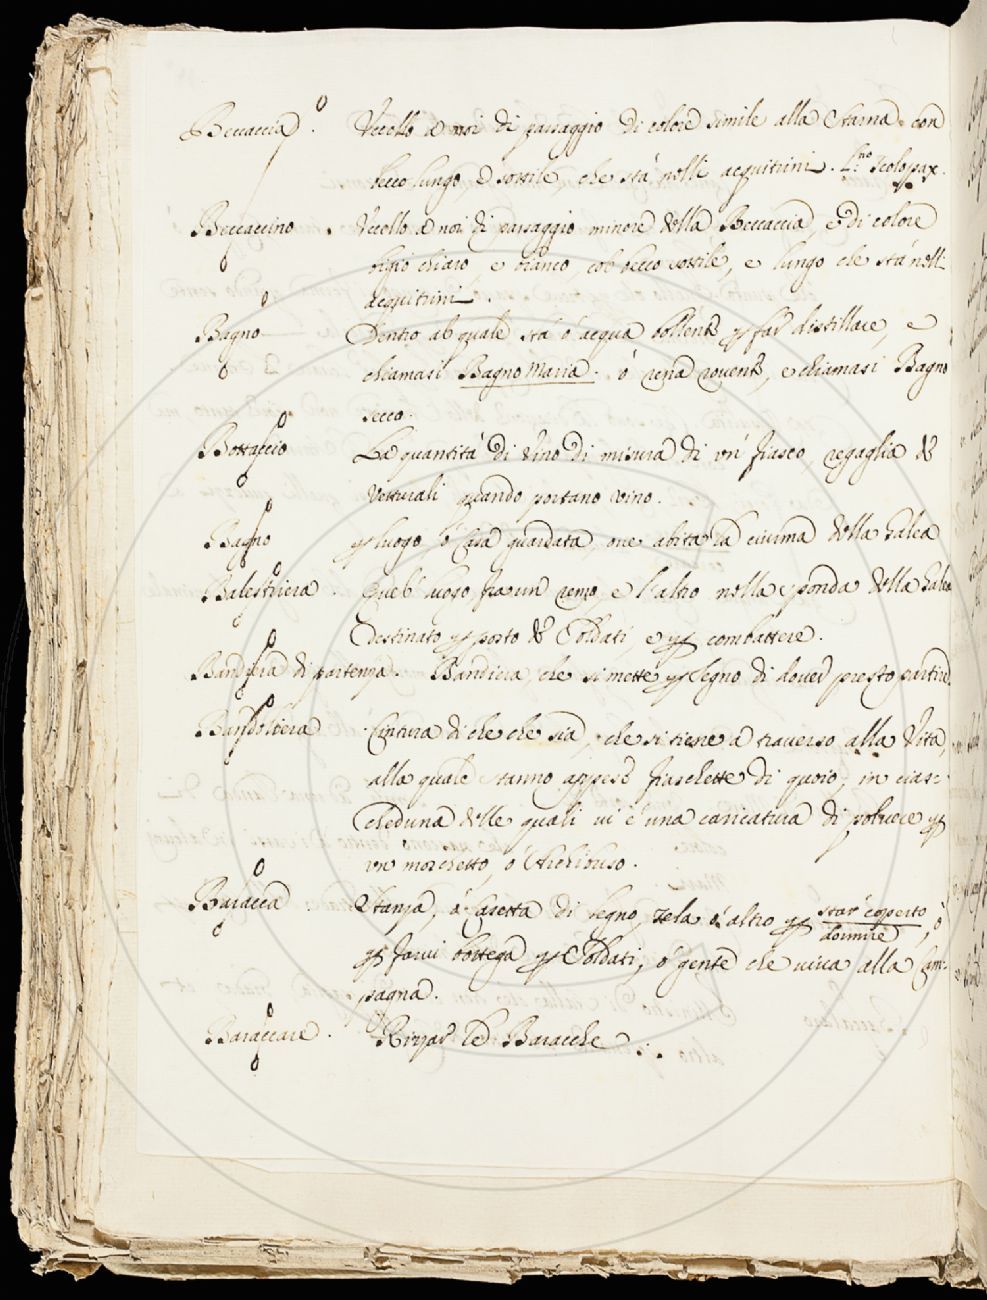 Beccaccia. Vccello a noi di passaggio di colore simile alla Starna con
becco lungo, e sottile, che stà nelli acquitrini. L.no Scolopax.
Beccaccino. Vccello a noi di passaggio minore della Beccaccia, e di colore
bigio chiaro, e bianco, col becco sottile, e lungo che stà nelli
acquitrini
Bagno Dentro al quale stà ò acqua bollente p far distillare, e
chiamasi Bagno Maria. ò rena rovente, e chiamasi Bagno
secco.
Bottaccio La quantità di vino di misura di un fiasco, regaglia de
Vetturali quando portano vino.
Bagno p luogo ò Casa guardata, oue abita la ciurma della Galea
Balestriera. Quel luogo fra un remo, e l'altro nella sponda della Galea
Destinato p posto de Soldati, e p combattere.
Bandiera di partenza. Bandiera, che si mette p segno di douer presto partire
Bandoliera Cintura di che che sia, che si tiene a trauerso alla Vita,
alla quale stanno appese fiaschette di quoio, in cias=
cheduna delle quali ui è una caricatura di poluere p
un moschetto, ò Archibuso.
Baracca. Stanza, ò Casetta di legno, tela ò altro p star coperto, ò
dormire
p farui bottega p Soldati, ò gente che uiua alla Cam=
pagna.
Baraccare. Rizzar le Baracche.